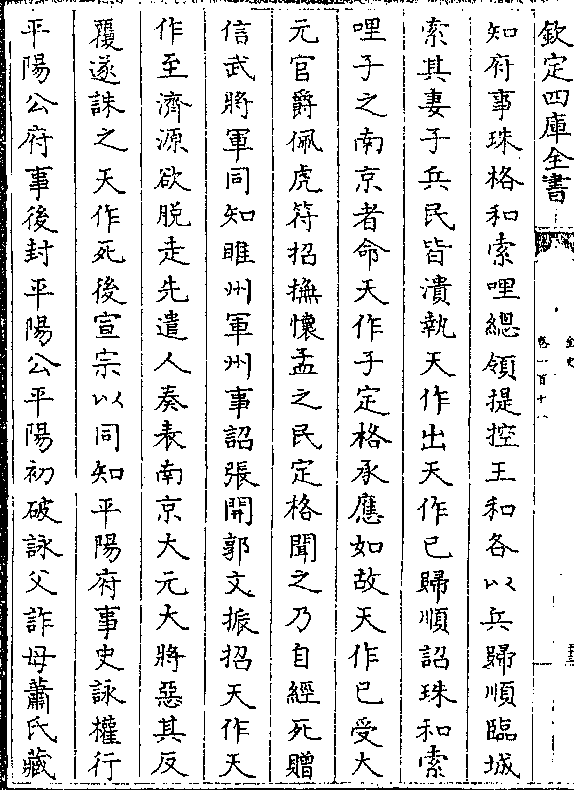 欽定四庫全書
金史
卷一百十八
知府事珠格和索哩總領提控王和各以兵歸順臨城
索其妻子兵民皆潰執天作出天作已歸順詔珠和索
哩子之南京者命天作子定格承應如故天作已受大
元官爵佩虎符招撫懷孟之民定格聞之乃自經死贈
信武將軍同知睢州軍州事詔張開郭文振招天作天
作至濟源欲脱走先遣人奏表南京大元大將惡其反
覆遂誅之天作死後宣宗以同知平陽府事史詠權行
平陽公府事後封平陽公平陽初破詠父詐母蕭氏藏